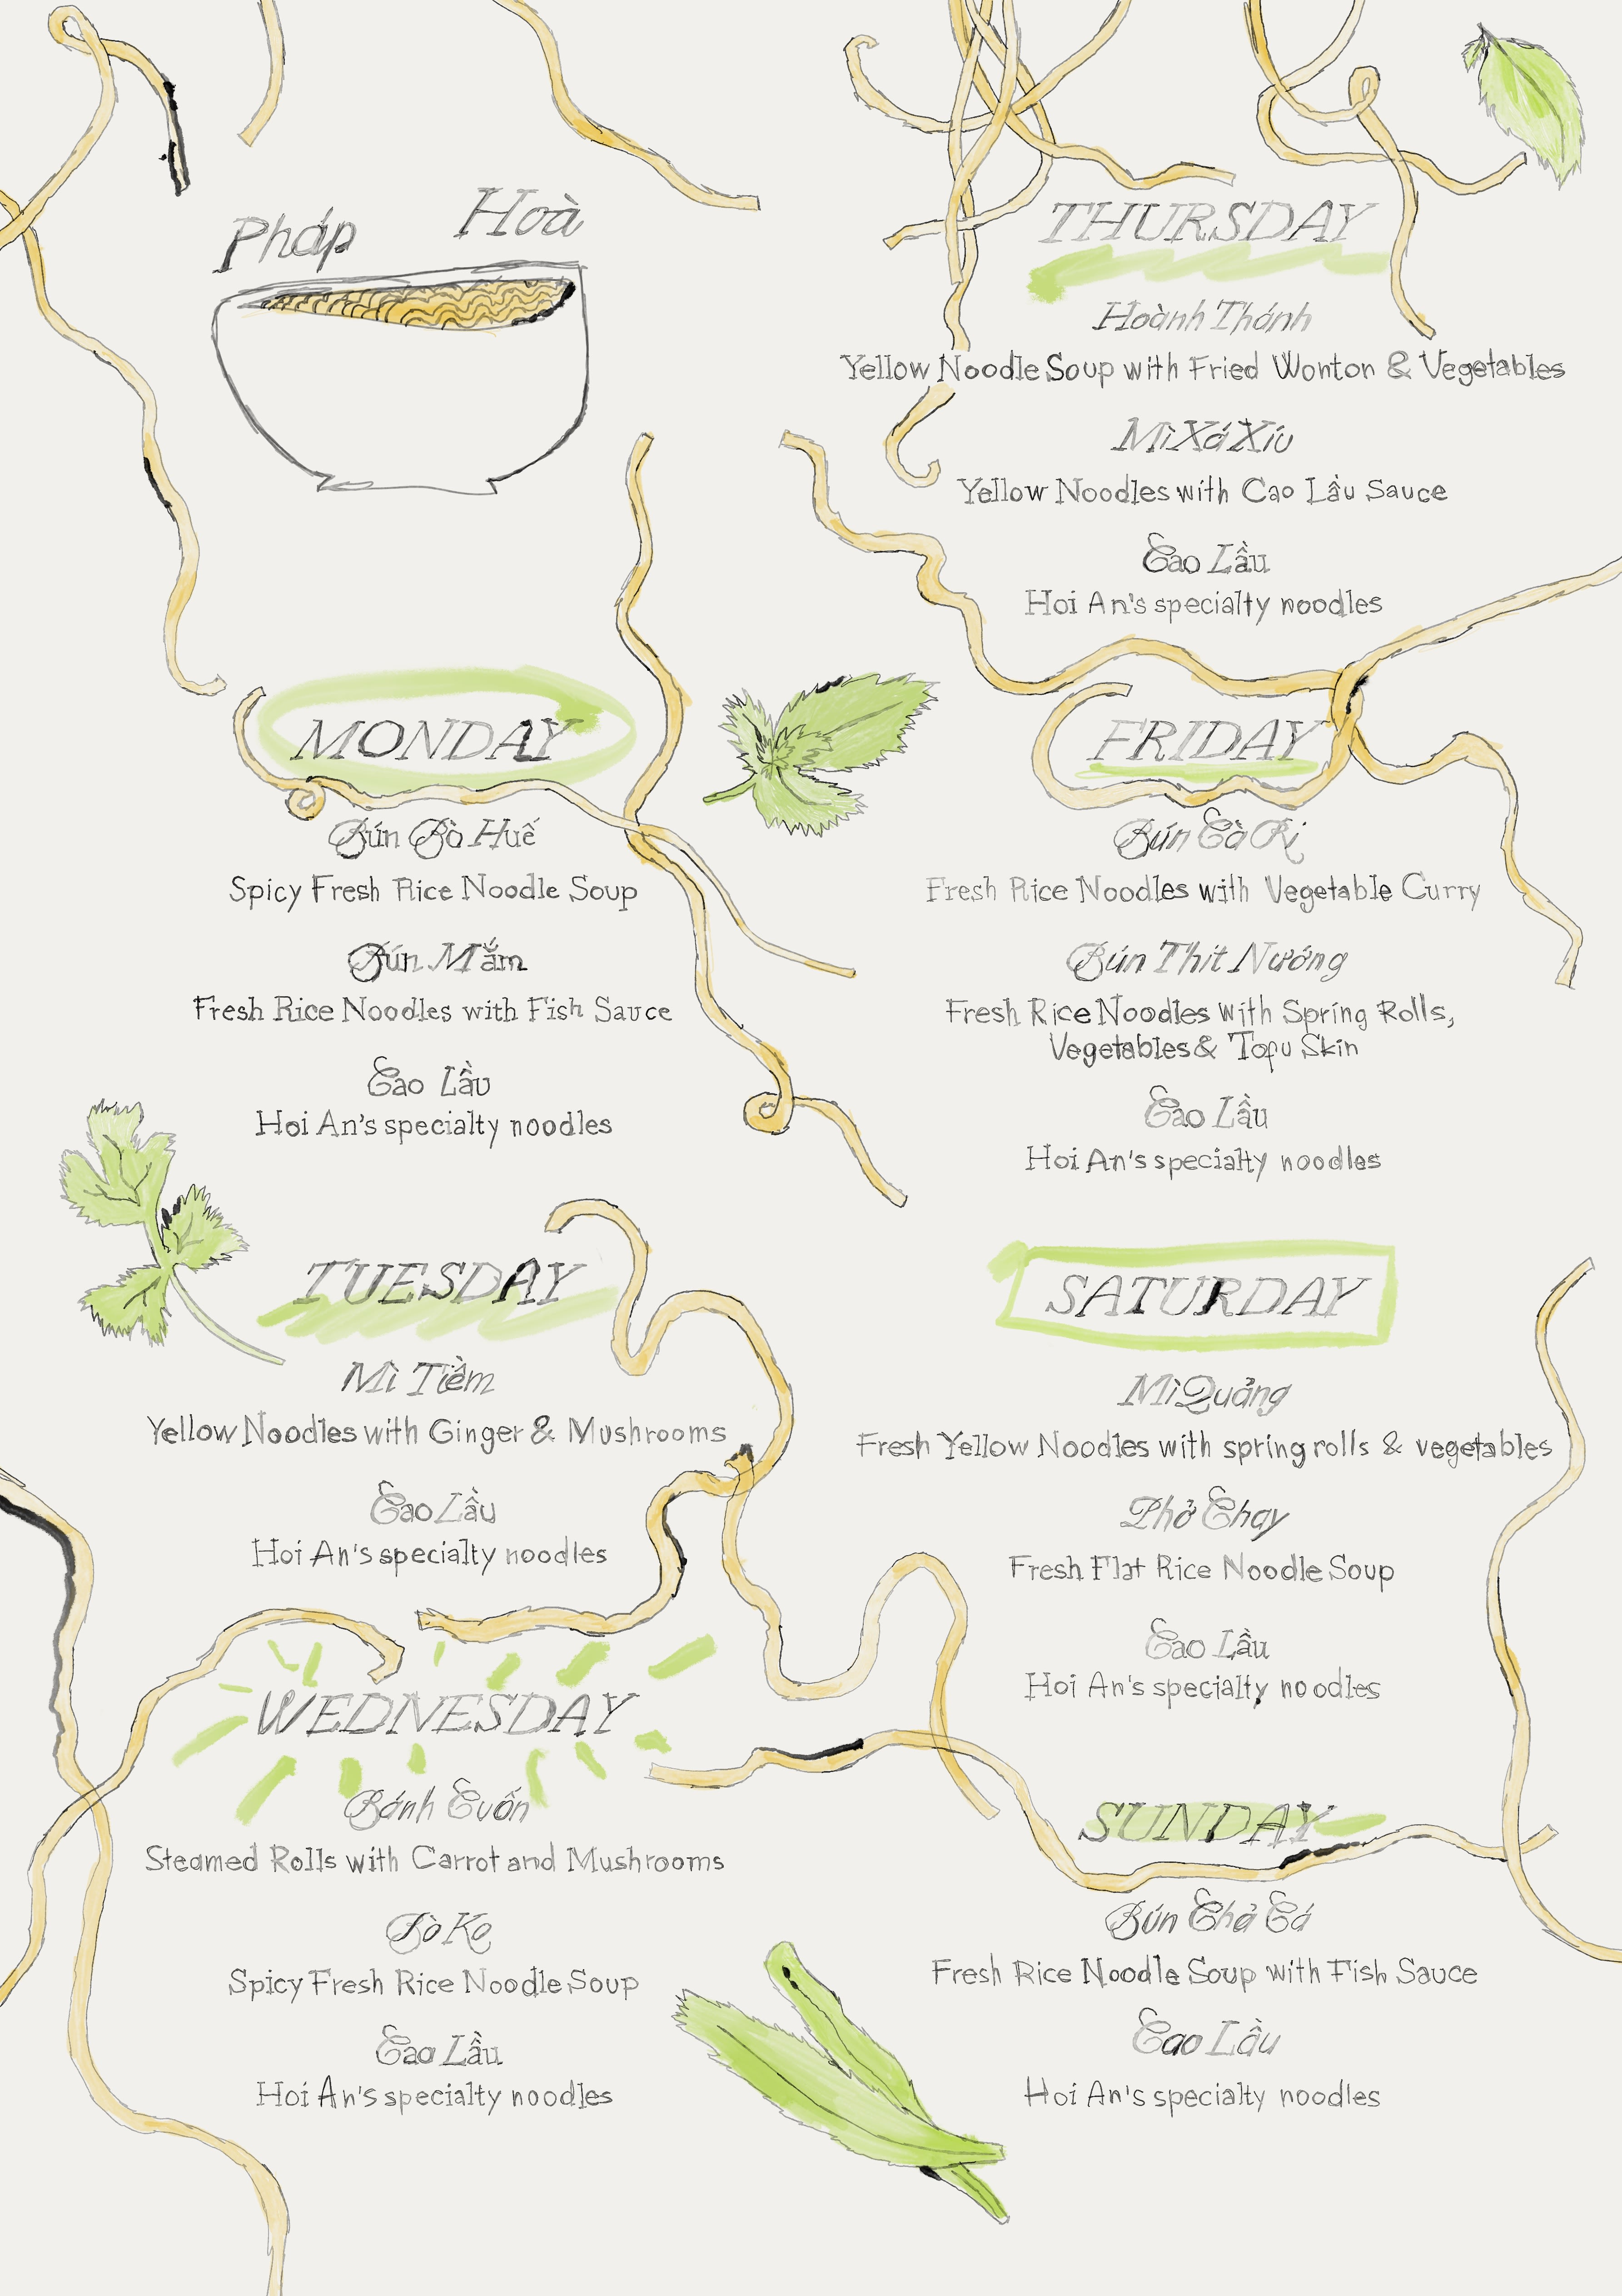 Pháp Hoà
MONDAY
Bún Bò Huế
Spicy Fresh Rice Noodle Soup
Bún Mắm
Fresh Rice Noodles with Fish Sauce
Cao Lầu
Hoi An's specialty noodles
TUESDAY
Mì Tiềm
Yellow Noodles with Ginger & Mushrooms
Cao Lầu
Hoi An's specialty noodles
WEDNESDAY
Bánh Cuốn
Steamed Rolls with Carrot and Mushrooms
Bò Ko
Spicy Fresh Rice Noodle Soup
Cao Lầu
Hoi An's specialty noodles
THURSDAY
Hoành Thánh
Yellow Noodle Soup with Fried Wonton & Vegetables
Mì Xá Xíu
Yellow Noodles with Cao Lầu Sauce
Cao Lầu
Hoi An's specialty noodles
FRIDAY
Bún Cà Ri
Fresh Rice Noodles with Vegetable Curry
Bún Thit Nướng
Fresh Rice Noodles with Spring Rolls,
Vegetables & Tofu Skin
Cao Lầu
Hoi An's specialty noodles
SATURDAY
Mì Quảng
Fresh Yellow Noodles with spring rolls & vegetables
Phở Chay
Fresh Flat Rice Noodle Soup
Cao Lầu
Hoi An's specialty noodles
SUNDAY
Bún Chả Cá
Fresh Rice Noodle Soup with Fish Sauce
Cao Lầu
Hoi An's specialty noodles